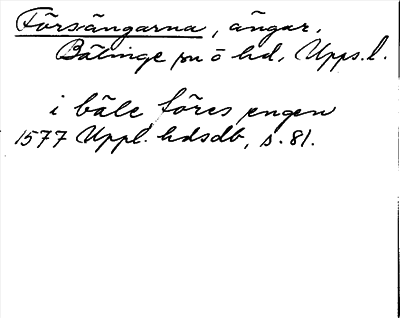 Försängarna, ängar,
Bälinge sn o hd, Upps.l.
i bäle föres engen
1577 Uppl. hdsdb, s. 81.